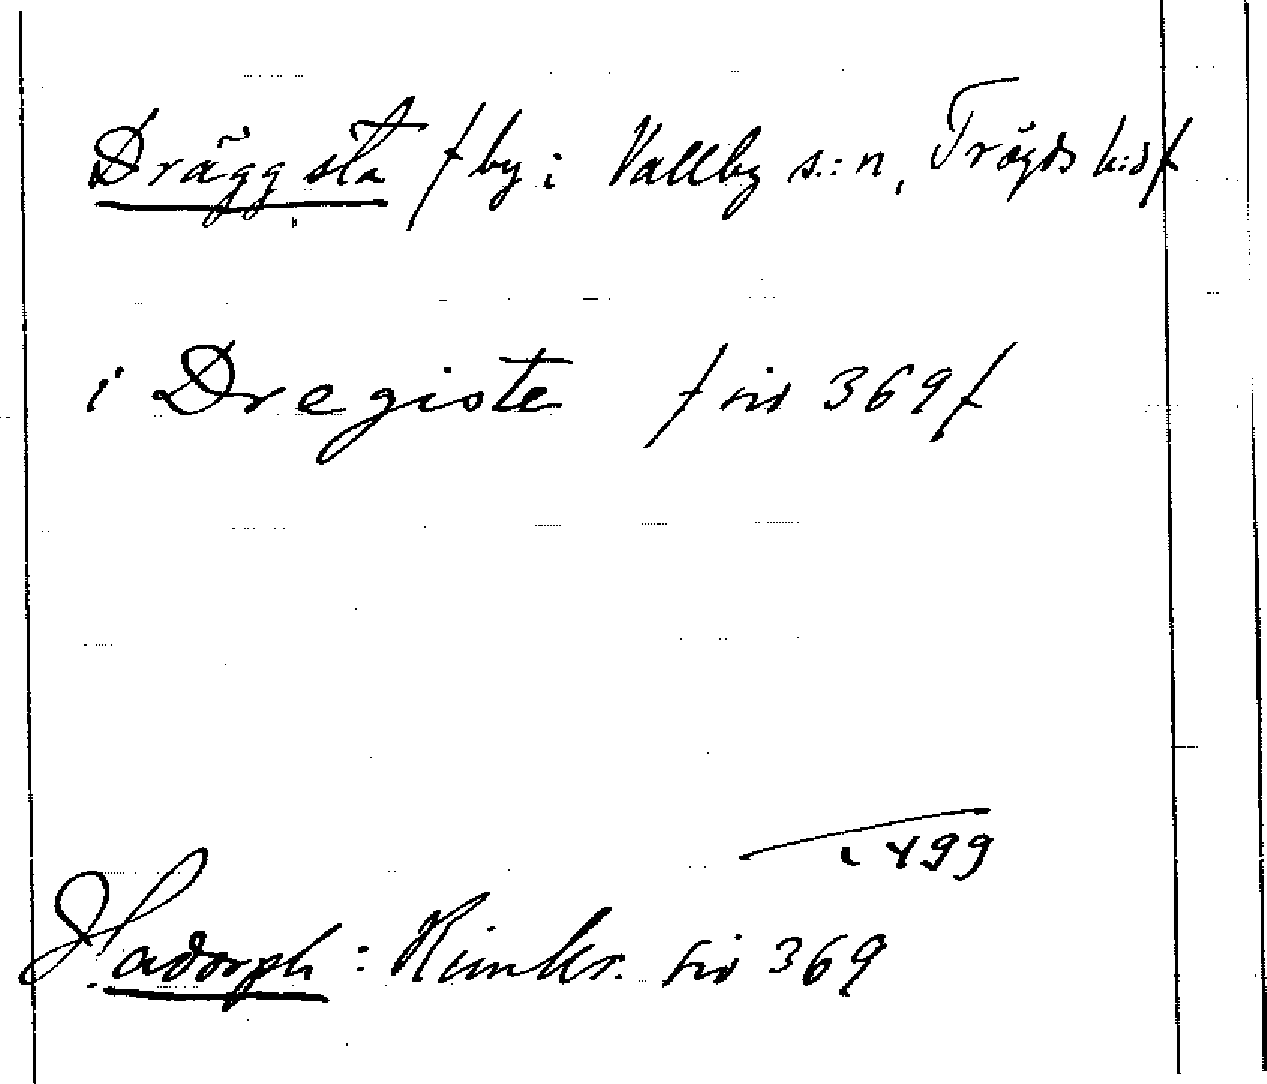 Dräggsta / by i Vallby s:n, Trögds h:d /
i Dregiste / sid 369 /
1499
Hadorph: Rimkr. sid 369